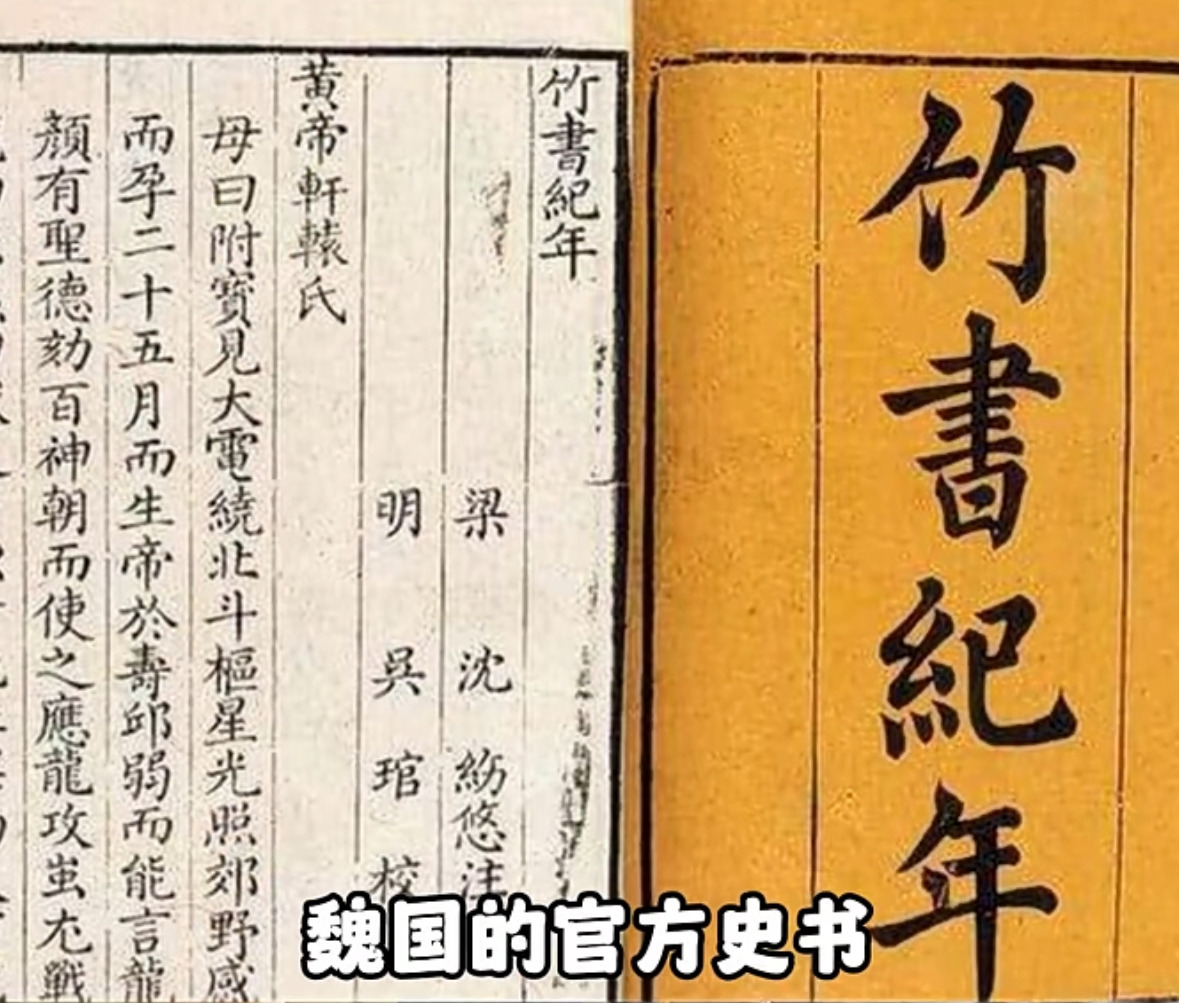 竹書紀年
竹書紀年
梁 沈 紛悠注
明 吳 琯 校
黃帝軒轅氏
母曰附寶見大電繞北斗樞星光照郊野感
而孕二十五月而生帝於壽邱弱而能言龍
顏有聖德劾百神朝而使之應龍攻蚩尤戰
魏国的官方史书